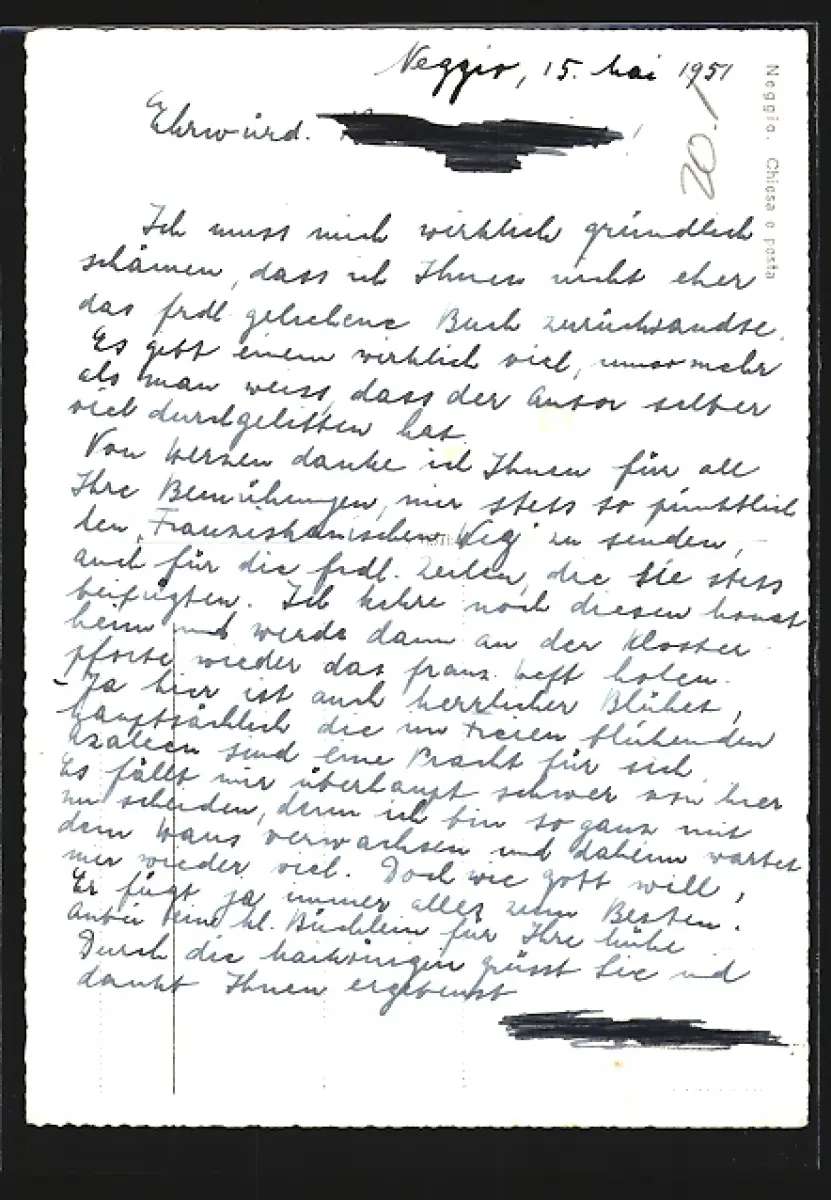 Neggio, 15. Mai 1951
Ehrwürd.                !
Neggio. Chiesa e posta
20.-
Ich muss mich wirklich gründlich
schämen, dass ich Ihnen nicht eher
das frdl. geliehene Buch zurücksandte.
Es gibt einem wirklich viel, umsomehr
als man weiss, dass der Autor selber
viel durchgelitten hat.
Von Herzen danke ich Ihnen für all
Ihre Bemühungen, mir stets so pünktlich
den "Franziskanischen Weg" zu senden,
auch für die frdl. Zeilen, die Sie stets
beifügten. Ich kehre noch diesen Monat
heim und werde dann an der Kloster-
pforte wieder das franz. Heft holen.
- Ja hier ist auch herrlicher Blühet,
hauptsächlich die im Freien blühenden
Azaleen sind eine Pracht für sich.
Es fällt mir überhaupt schwer von hier
zu scheiden, denn ich bin so ganz mit
dem Haus verwachsen und daheim wartet
mir wieder viel. Doch wie Gott will,
Er fügt ja immer alles zum Besten.
Anbei ein kl. Büchlein für Ihre Mühe
Durch die Maikönigin grüsst Sie und
dankt Ihnen ergebenst